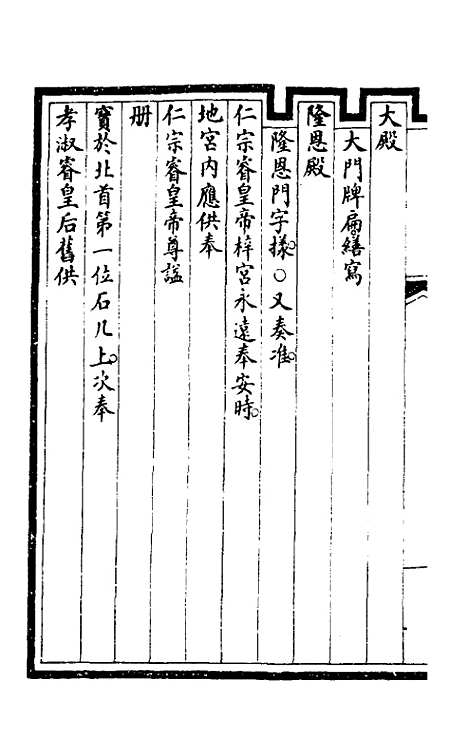 大殿
大門牌扁。繕寫
隆恩殿
隆恩門字樣。○又奏准。
仁宗睿皇帝梓宮永遠奉安時。
地宮內應供奉
仁宗睿皇帝尊謚
册
寶於北首第一位石几上。次奉
孝淑睿皇后舊供